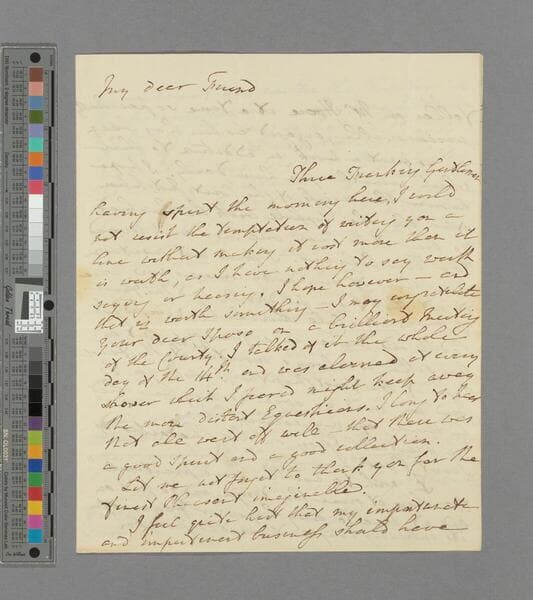 My dear Friend
Three Newbury Gentlemen
having spent the morning here, I could
not resist the temptation of writing you a
line without making it cost more than it
is worth, as I have nothing to say worth
saying or hearing. I hope however — and
that is worth something — I may congratulate
your dear Sposo on a brilliant meeting
of the County. I talked of it the whole
day of the 14th and was alarmed at every
shower which I feared might keep away
the more distant Equestrians. I long to hear
that all went off well — that there was
a good spirit and a good collection.
Let me not forget to thank you for the
finest Pheasant imaginable.
I feel quite hurt that my importunate
and impertinent business should have